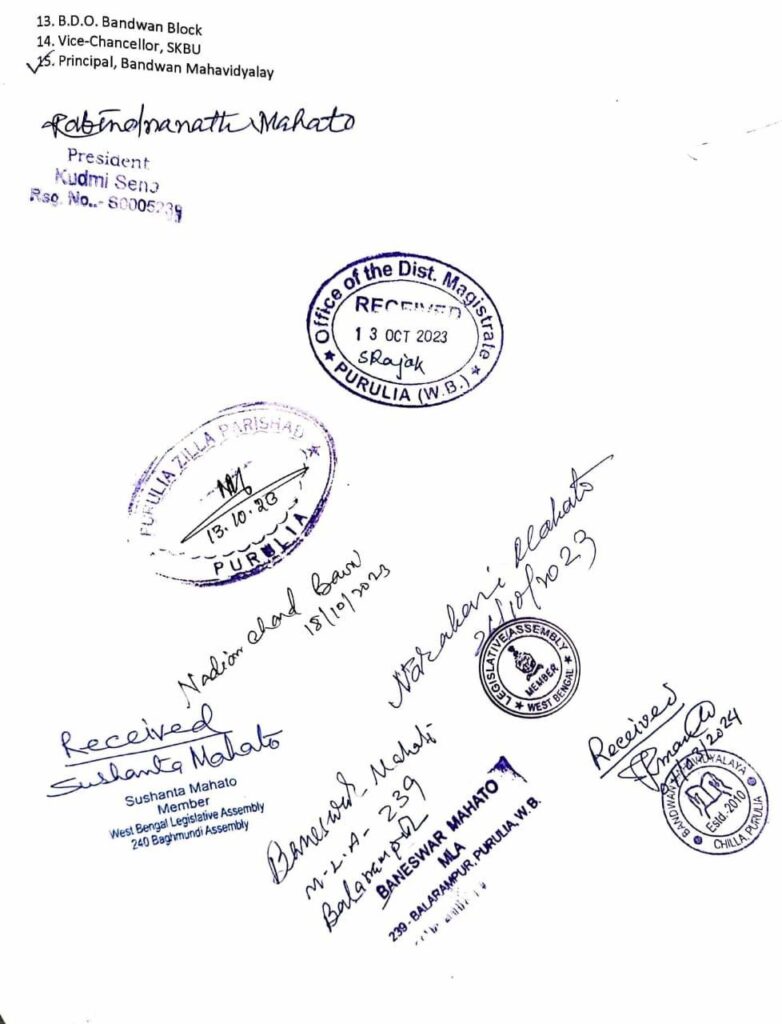 13. B.D.O. Bandwan Block
14. Vice-Chancellor, SKBU
15. Principal, Bandwan Mahavidyalay
Rabindranath Mahato
President
Kudmi Sena
Reg. No..- S0005239
Office of the Dist. Magistrate
RECEIVED
13 OCT 2023
SRajak
PURULIA (W.B.)
PURULIA ZILLA PARISHAD
13.10.23
PURULIA
Nadiar chand
18/10/2023
Narahari Mahato
/10/2023
LEGISLATIVE ASSEMBLY
MEMBER
WEST BENGAL
Received
Sushanta Mahato
Sushanta Mahato
Member
West Bengal Legislative Assembly
240 Baghmundi Assembly
Baneswar Mahato
M.L.A- 239
Balarampur
BANESWAR MAHATO
MLA
239 - BALARAMPUR, PURULIA, W.B.
Received
/03/2024
BANDWAN MAHAVIDYALAYA
Estd.-2010
CHILLA, PURULIA